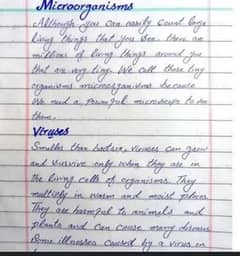 Microorganisms
Although you can easily count large
living things that you see there are
millions of living things around you
that are very tiny. We call these tiny
organisms microorganisms because
We need a powerful microscope to see
them.
Viruses
Smaller than bacteria, viruses can grow
and survive only when they are in
the living cells of organisms. They
multiply in warm and moist places
They are harmful to animals and
plants and can cause many diseases
Some illnesses caused by a virus on